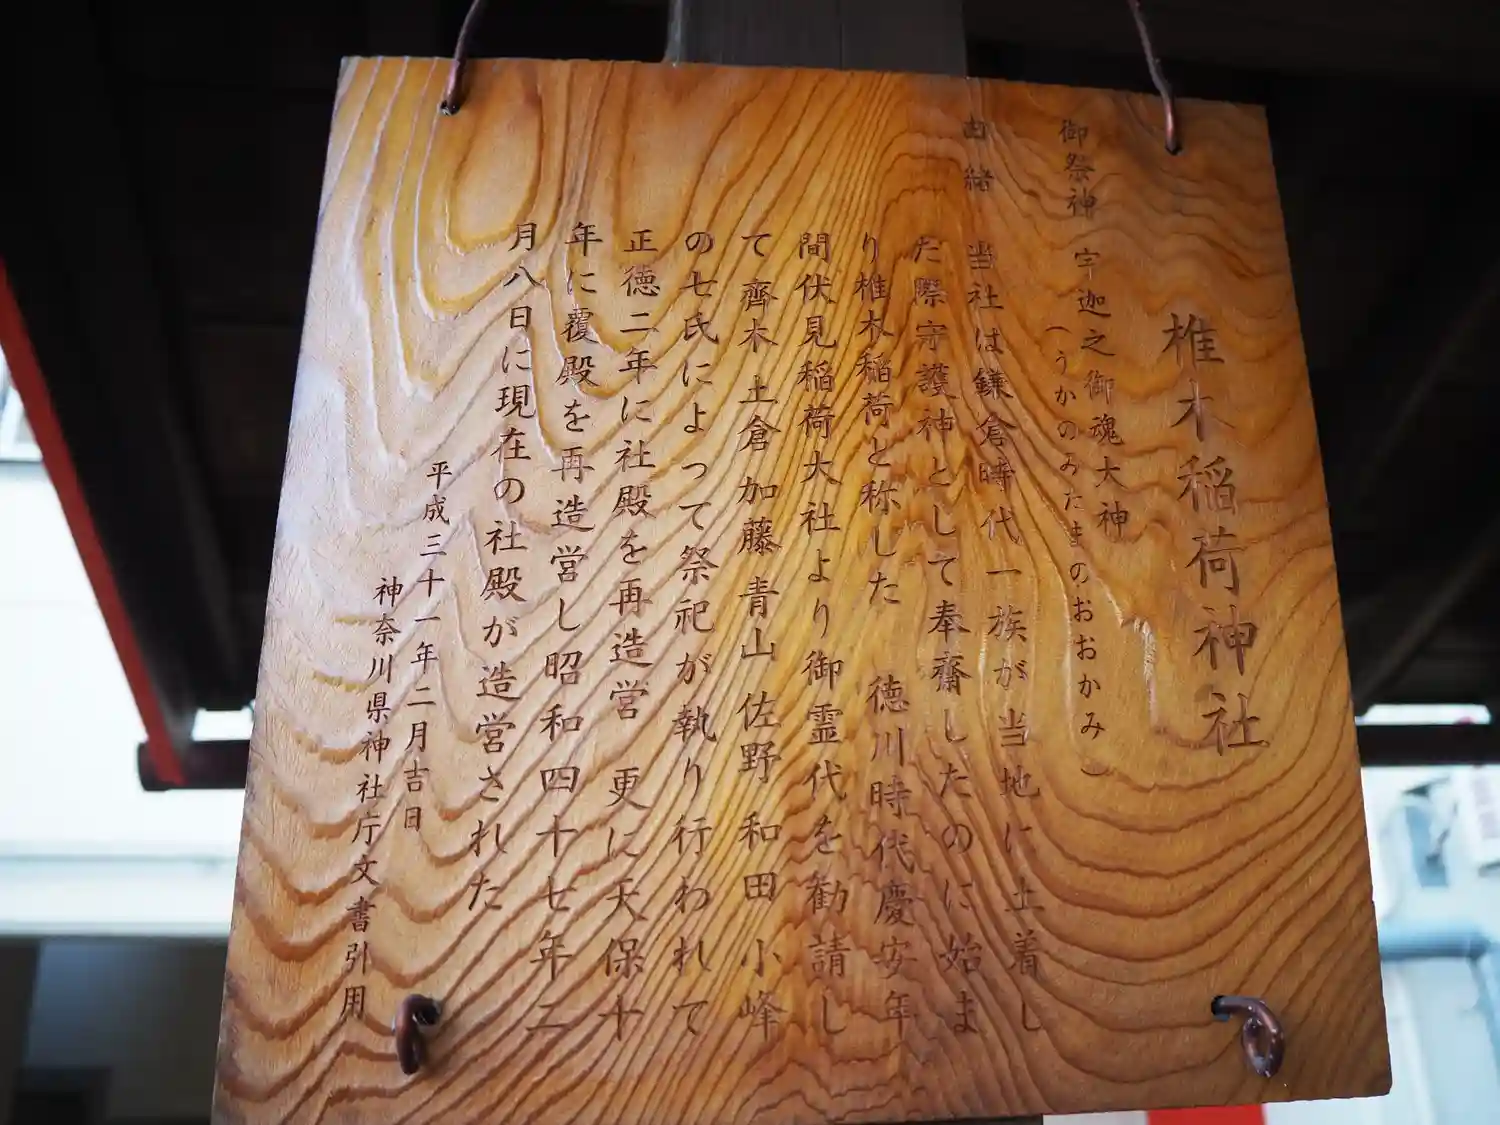 椎木稲荷神社
御祭神 宇迦之御魂大神
(うかのみたまのおおかみ)
由緒 当社は鎌倉時代 一族が当地に土着し
た際守護神として奉齋したのに始ま
り椎木稲荷と称した 徳川時代慶安年
間伏見稲荷大社より御霊代を勧請し
て 齊木 土倉 加藤 青山 佐野 和田 小峰
の七氏によって祭祀が執り行われて
正徳二年に社殿を再造営 更に天保十
年に覆殿を再造営し昭和四十七年二
月八日に現在の社殿が造営された
平成三十一年二月吉日
神奈川県神社庁文書引用